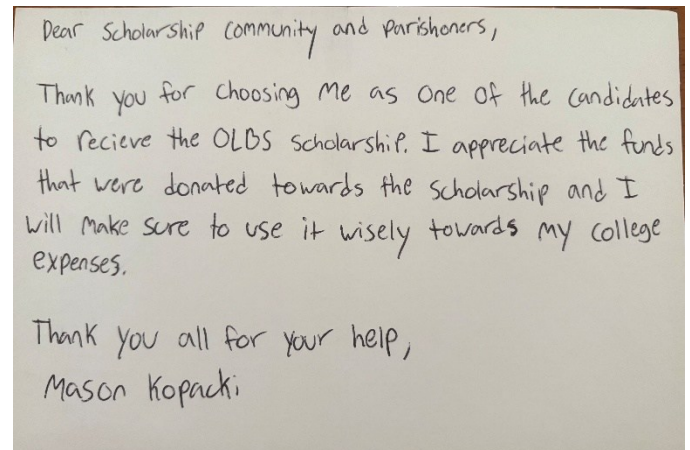 Dear Scholarship Community and Parishoners,
Thank you for choosing me as one of the candidates
to recieve the OLBS scholarship. I appreciate the funds
that were donated towards the scholarship and I
will make sure to use it wisely towards my college
expenses.
Thank you all for your help,
Mason Kopacki